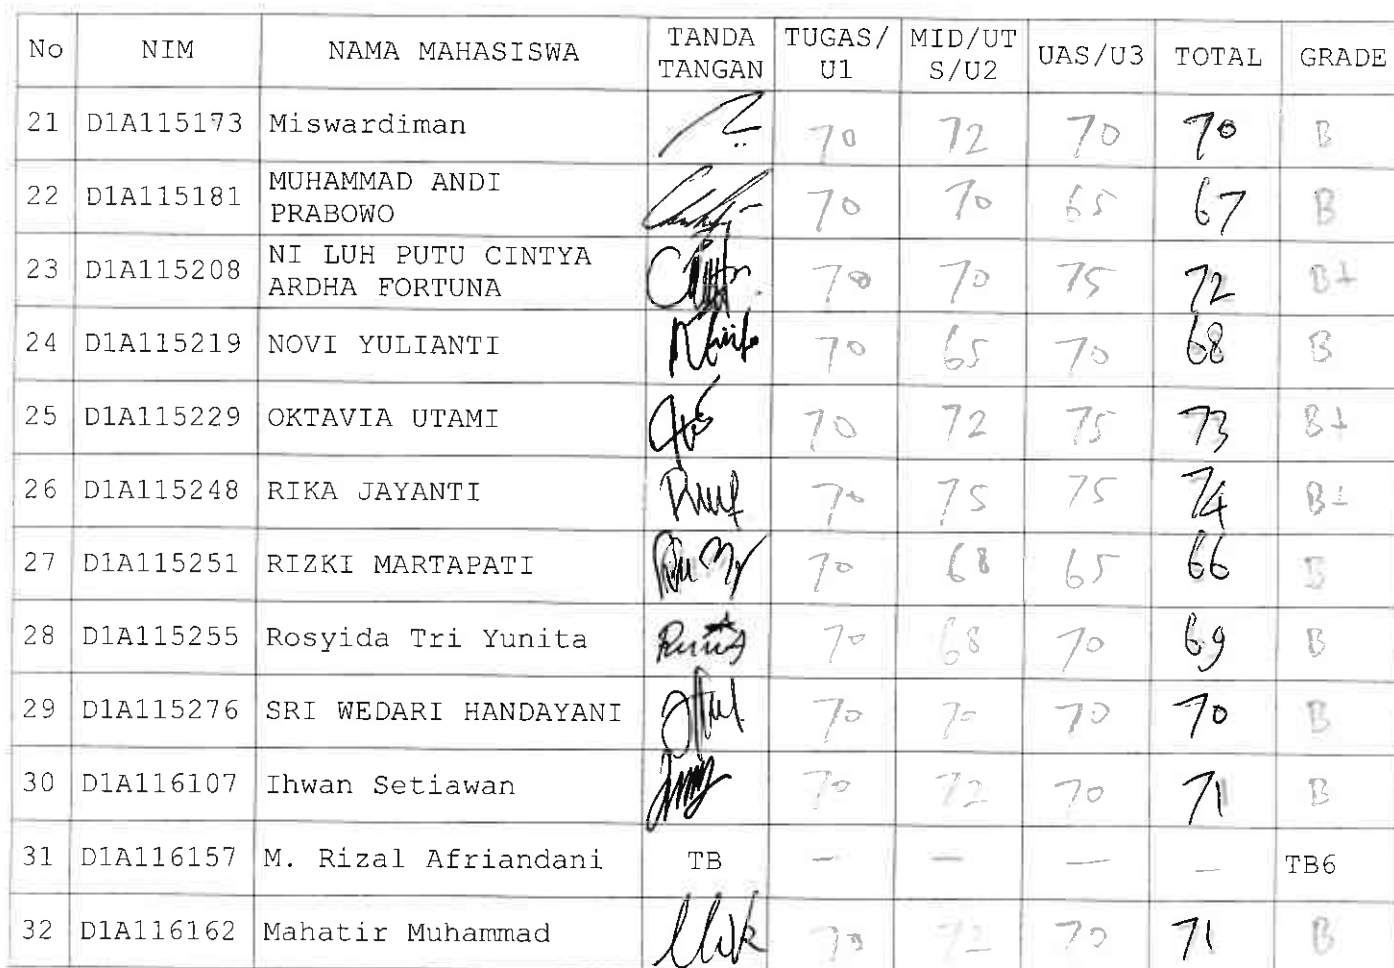 No NIM NAMA MAHASISWA TANDA TANGAN TUGAS/U1 MID/UTS/U2 UAS/U3 TOTAL GRADE
21 D1A115173 Miswardiman 70 72 70 70 B
22 D1A115181 MUHAMMAD ANDI PRABOWO 70 70 65 67 B
23 D1A115208 NI LUH PUTU CINTYA ARDHA FORTUNA 70 70 75 72 B+
24 D1A115219 NOVI YULIANTI 70 65 70 68 B
25 D1A115229 OKTAVIA UTAMI 70 72 75 73 B+
26 D1A115248 RIKA JAYANTI 70 75 75 74 B+
27 D1A115251 RIZKI MARTAPATI 70 68 65 66 B
28 D1A115255 Rosyida Tri Yunita 70 68 70 69 B
29 D1A115276 SRI WEDARI HANDAYANI 70 70 70 70 B
30 D1A116107 Ihwan Setiawan 70 72 70 71 B
31 D1A116157 M. Rizal Afriandani TB - - - - TB6
32 D1A116162 Mahatir Muhammad 70 72 70 71 B